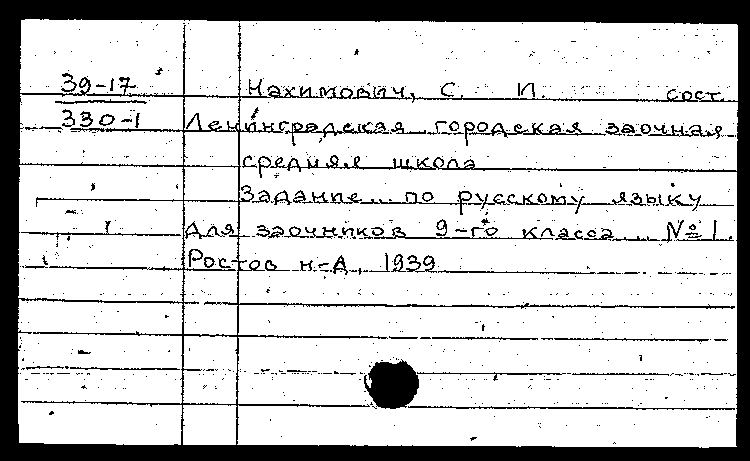 39-17 Нахимович, С. И. сост.
330-1 Ленинградская городская заочная
средняя школа
Задание... по русскому языку
для заочников 9-го класса... №1.
Ростов н-Д, 1939